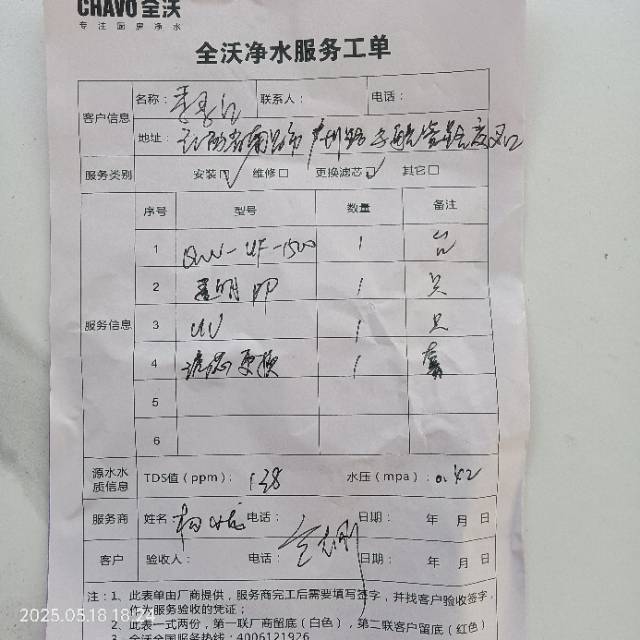 CHAVO 全沃
专注厨房净水
全沃净水服务工单
客户信息
名称：
联系人：
电话：
地址：
服务类别 安装☑ 维修☐ 更换滤芯☑ 其它☐
序号 型号 数量 备注
服务信息
1 1 台
2 透明 1 只
3 UV 1 只
4 滤芯更换 1 套
5
6
源水水质信息
TDS值（ppm）：138 水压（mpa）：0.42
服务商 姓名： 电话： 日期： 年 月 日
客户 验收人： 电话： 日期： 年 月 日
注：1、此表单由厂商提供，服务商完工后需要填写签字，并找客户验收签字，
作为服务验收的凭证；
2、此表一式两份，第一联厂商留底（白色），第二联客户留底（红色）
3、全沃全国服务热线：4006121926
2025.05.18 18:24